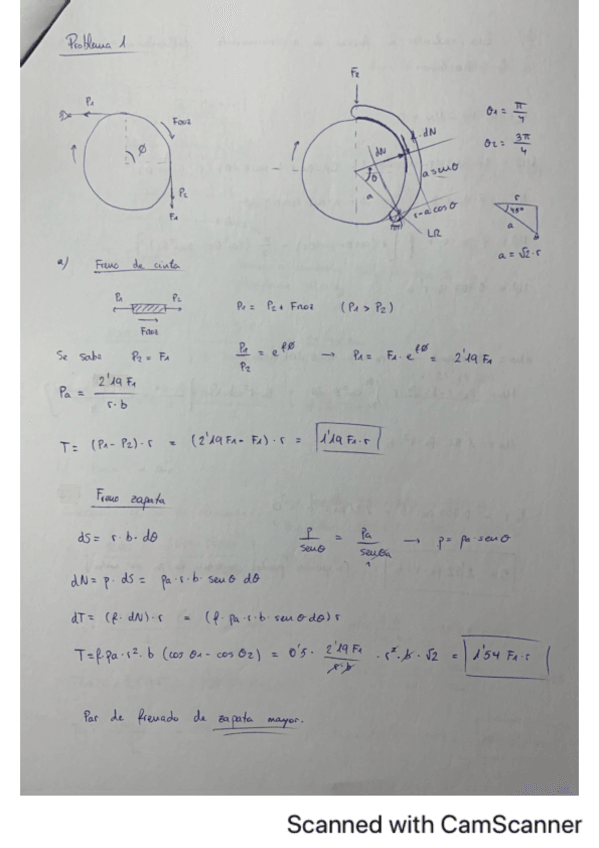 Problema 1
P1
Froz
Ø
P2
F1
F2
θ1 = π/4
θ2 = 3π/4
f·dN
dN
a senθ
θ
a
r-a cos θ
LR
r
45°
a
a = √2·r
a) Freno de cinta
P1 P2
Froz
P1 = P2 + Froz (P1 > P2)
Se sabe P2 = F1 P1/P2 = e^fØ → P1 = F1·e^fØ = 2'19 F1
Pa = 2'19 F1 / r·b
T = (P1 - P2)·r = (2'19 F1 - F1)·r = 1'19 F1·r
Freno zapata
dS = r·b·dθ p/senθ = pa/senθa → p = pa·senθ
1
dN = p·dS = pa·r·b·senθ dθ
dT = (f·dN)·r = (f·pa·r·b·senθ dθ)r
T = f·pa·r²·b (cos θ1 - cos θ2) = 0'5 · 2'19 F1 / r·b · r²·b·√2 = 1'54 F1·r
Par de frenado de zapata mayor.
Scanned with CamScanner